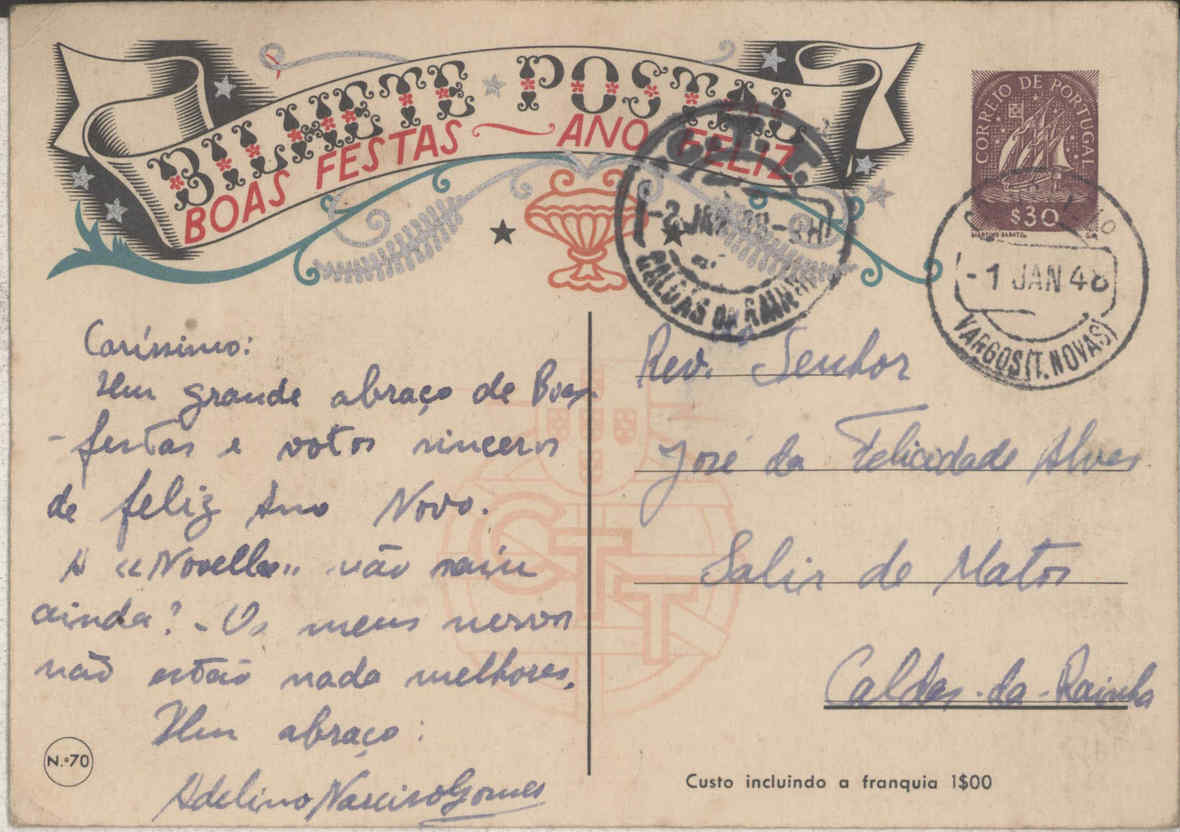 BILHETE POSTAL
BOAS FESTAS ~ ANO FELIZ
CORREIO DE PORTUGAL
$30
C.T.T.
-2 JAN 48-9H
CALDAS DA RAINHA
-1 JAN 48
VARGOS (T. NOVAS)
Caríssimo:
Um grande abraço de Boas-
-festas e votos sinceros
de feliz Ano Novo.
A «Novella» não saiu
ainda? - Os meus nervos
não estão nada melhores.
Um abraço:
Adelino Narciso Gomes
N.º 70
Rev. Senhor
José da Felicidade Alves
Salir de Matos
Caldas-da-Rainha
CTT
Custo incluindo a franquia 1$00